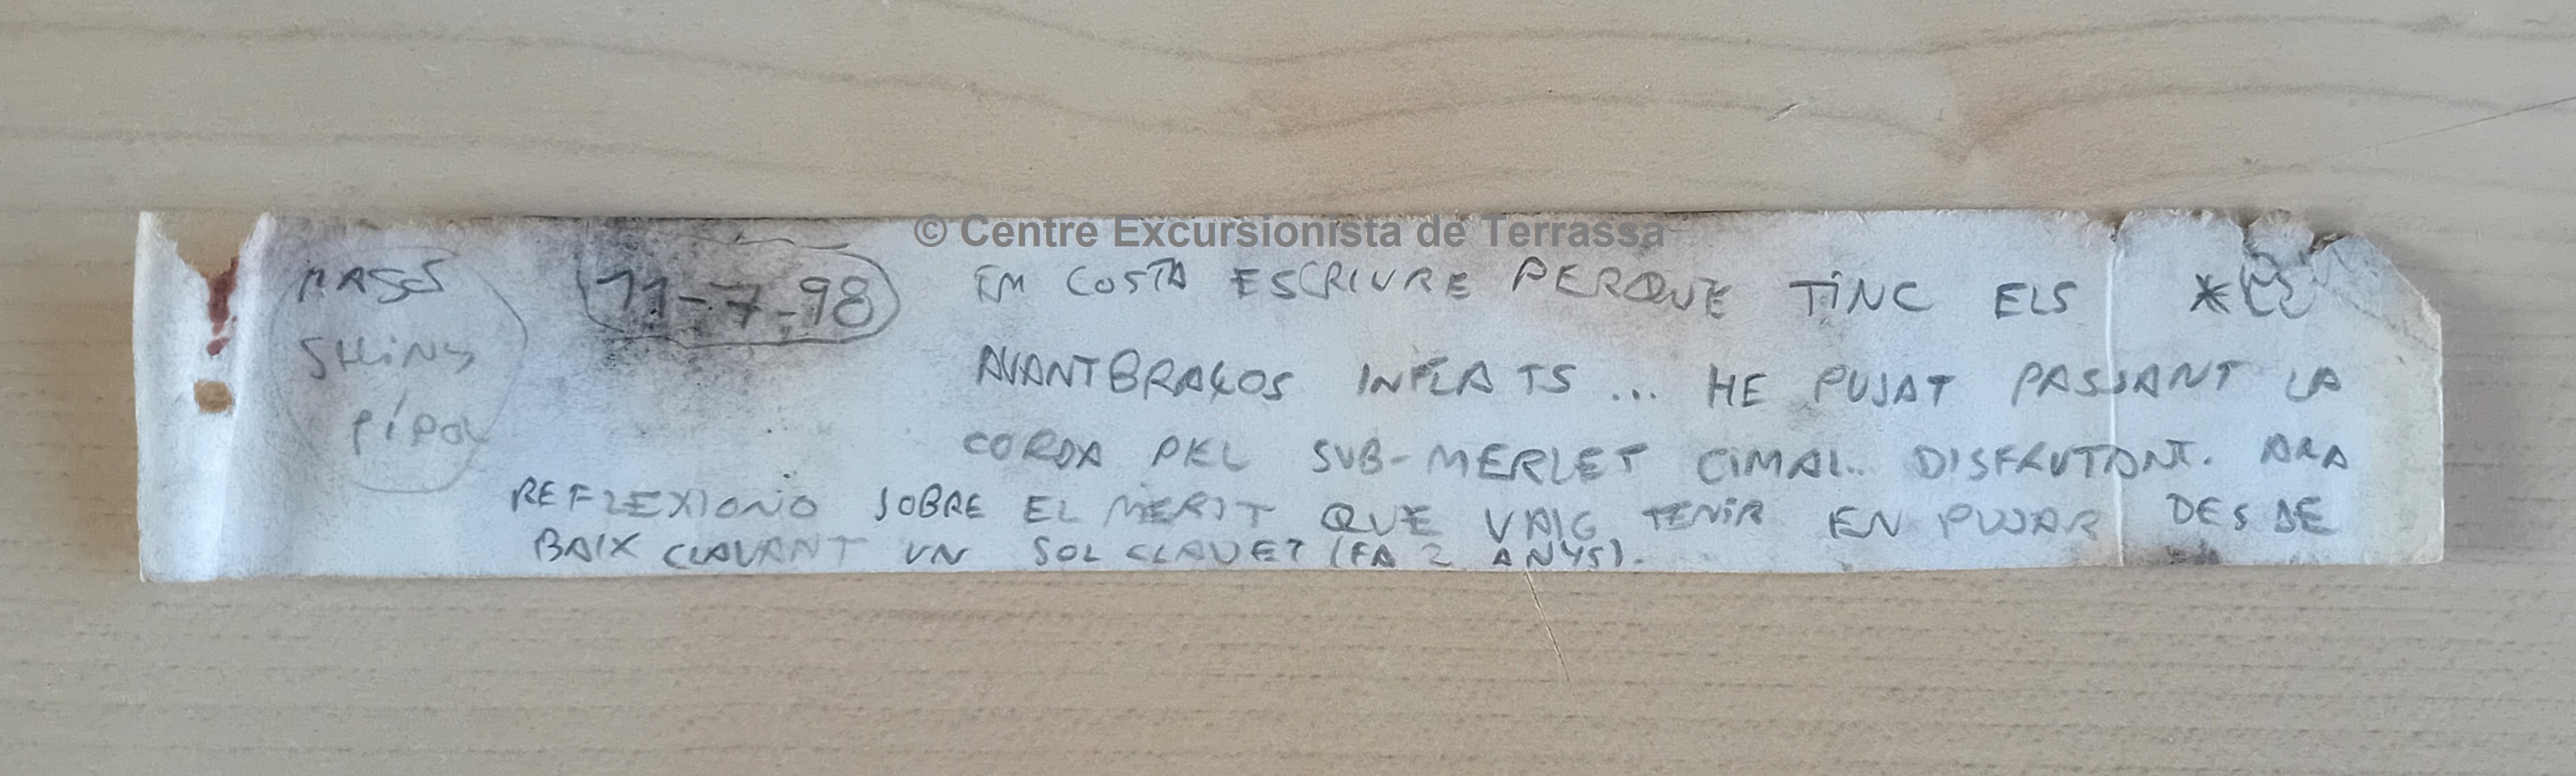 © Centre Excursionista de Terrassa
MASSÓ
11-7-98
EM COSTA ESCRIURE PERQUE TINC ELS
AVANTBRAÇOS INFLATS ... HE PUJAT PASSANT LA
CORDA PEL SUB-MERLET CIMAL.. DISFRUTANT. ARA
REFLEXIONO SOBRE EL MÈRIT QUE VAIG TENIR EN PUJAR DES DE
BAIX CLAVANT UN SOL CLAVET (FA 2 ANYS).